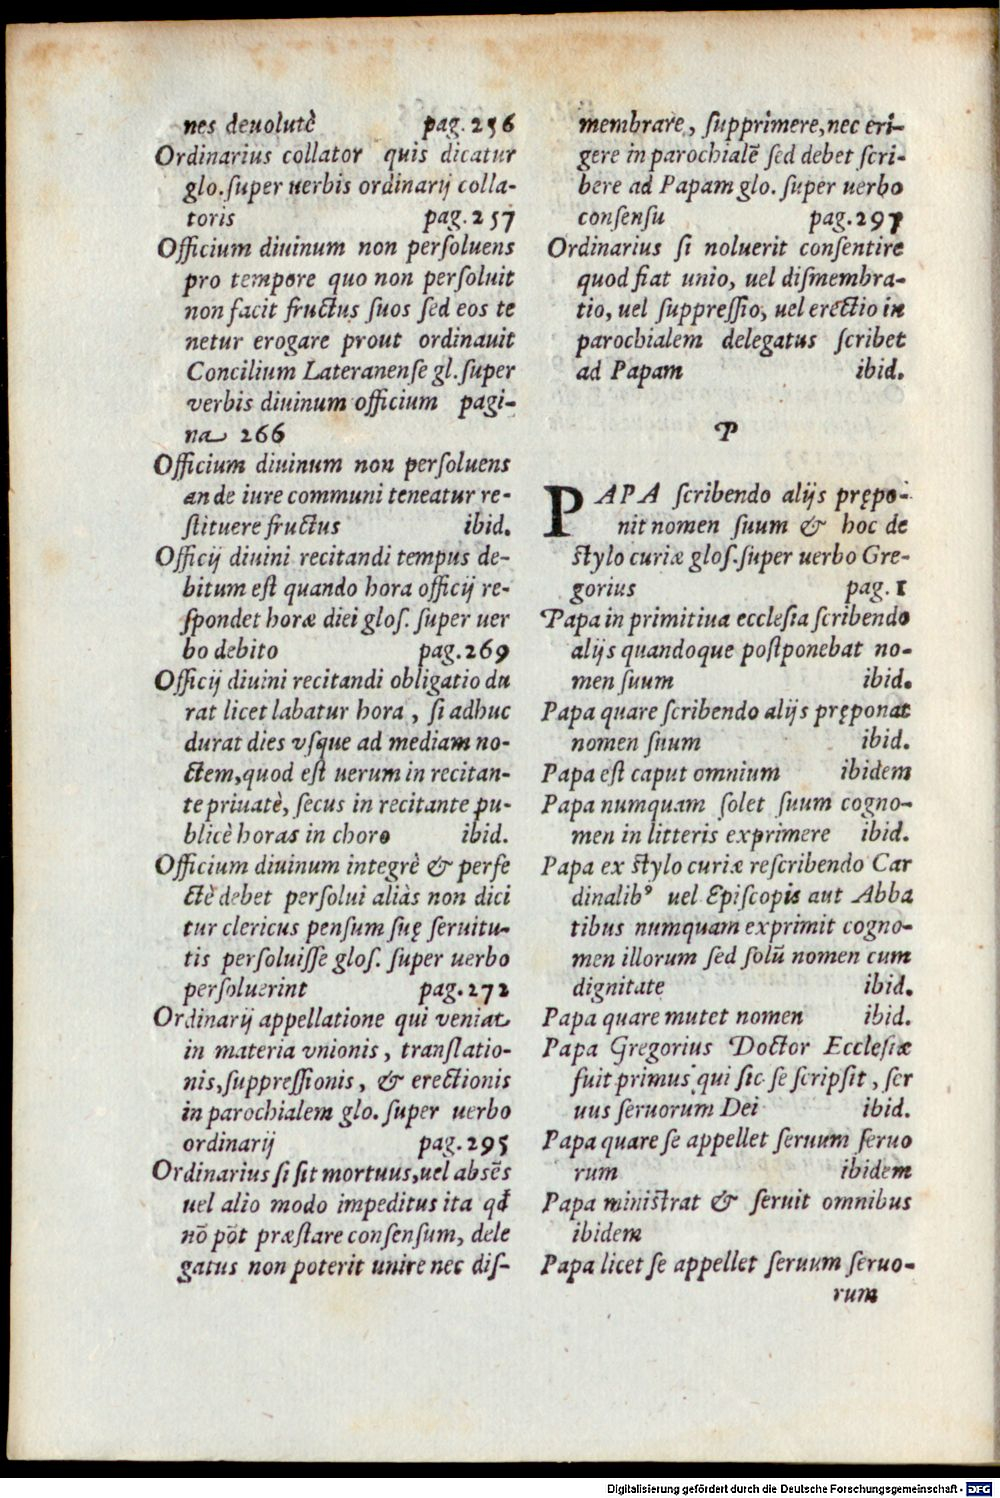 nes deuolutè pag. 256
Ordinarius collator quis dicatur
glo. ſuper uerbis ordinarij colla-
toris pag. 257
Officium diuinum non perſoluens
pro tempore quo non perſoluit
non facit fructus ſuos ſed eos te
netur erogare prout ordinauit
Concilium Lateranenſe gl. ſuper
verbis diuinum officium pagi-
na 266
Officium diuinum non perſoluens
an de iure communi teneatur re-
ſtituere fructus ibid.
Officij diuini recitandi tempus de-
bitum eſt quando hora officij re-
ſpondet horæ diei gloſ. ſuper uer
bo debito pag. 269
Officij diuini recitandi obligatio du
rat licet labatur hora, ſi adhuc
durat dies vſque ad mediam no-
ctem, quod eſt uerum in recitan-
te priuatè, ſecus in recitante pu-
blicè horas in choro ibid.
Officium diuinum integrè & perfe
ctè debet perſolui aliàs non dici
tur clericus penſum ſuę ſeruitu-
tis perſoluiſſe gloſ. ſuper uerbo
perſoluerint pag. 272
Ordinarij appellatione qui veniat
in materia vnionis, tranſlatio-
nis, ſuppreſſionis, & erectionis
in parochialem glo. ſuper uerbo
ordinarij pag. 295
Ordinarius ſi ſit mortuus, uel abſẽs
uel alio modo impeditus ita qđ
nõ põt præſtare conſenſum, dele
gatus non poterit unire nec diſ-
membrare, ſupprimere, nec eri-
gere in parochialẽ ſed debet ſcri-
bere ad Papam glo. ſuper uerbo
conſenſu pag. 297
Ordinarius ſi noluerit conſentire
quod fiat unio, uel diſmembra-
tio, uel ſuppreſſio, uel erectio in
parochialem delegatus ſcribet
ad Papam ibid.
P
PAPA ſcribendo alijs prępo-
nit nomen ſuum & hoc de
ſtylo curiæ gloſ. ſuper uerbo Gre-
gorius pag. 1
Papa in primitiua eccleſia ſcribendo
alijs quandoque poſtponebat no-
men ſuum ibid.
Papa quare ſcribendo alijs pręponat
nomen ſuum ibid.
Papa eſt caput omnium ibidem
Papa numquam ſolet ſuum cogno-
men in litteris exprimere ibid.
Papa ex ſtylo curiæ reſcribendo Car
dinalibꝰ uel Epiſcopis aut Abba
tibus numquam exprimit cogno-
men illorum ſed ſolũ nomen cum
dignitate ibid.
Papa quare mutet nomen ibid.
Papa Gregorius Doctor Eccleſiæ
fuit primus qui ſic ſe ſcripſit, ſer
uus ſeruorum Dei ibid.
Papa quare ſe appellet ſeruum ſeruo
rum ibidem
Papa miniſtrat & ſeruit omnibus
ibidem
Papa licet ſe appellet ſeruum ſeruo-
rum
Digitalisierung gefördert durch die Deutsche Forschungsgemeinschaft - DFG